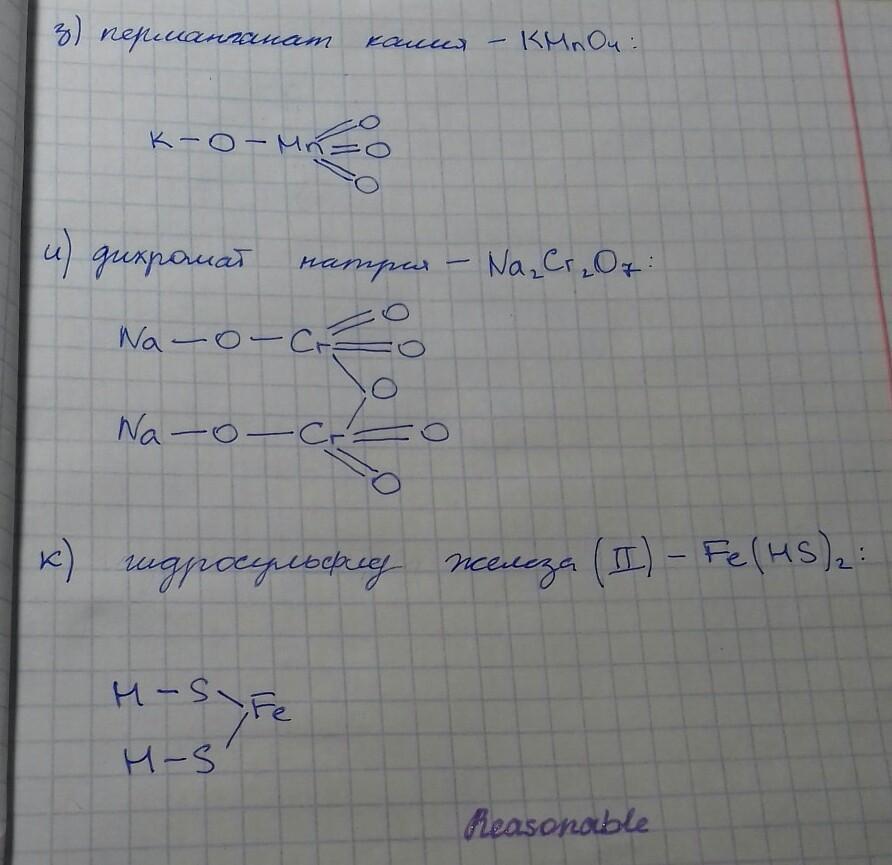 з) перманганат калия – KMnO₄:
K – O – Mn = O
= O
= O
и) дихромат натрия – Na₂Cr₂O₇:
Na – O – Cr = O
= O
O
Na – O – Cr = O
= O
к) гидросульфид железа (II) – Fe(HS)₂:
H – S
Fe
H – S
Reasonable